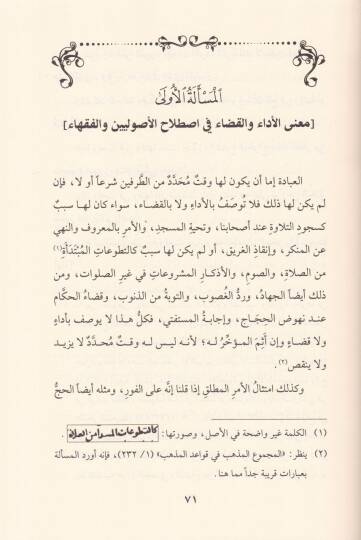 المَسْأَلَةُ الأُولَى
[معنى الأداء والقضاء في اصطلاح الأصوليين والفقهاء]
العبادة إما أن يكون لها وقتٌ مُحَدَّدٌ من الطَّرفين شرعاً أو لا، فإن
لم يكن لها ذلك فلا تُوصَفُ بالأداءِ ولا بالقضاء، سواء كان لها سببٌ
كسجودِ التلاوةِ عند أصحابنا، وتحيةِ المسجدِ، والأمرِ بالمعروف والنهي
عن المنكر، وإنقاذِ الغريق، أو لم يكن لها سببٌ كالتطوعاتِ المُبْتَدَأَةِ(١)
من الصلاةِ، والصومِ، والأذكارِ المشروعاتِ في غيرِ الصلوات، ومن
ذلك أيضاً الجهادُ، وردُّ الغُصوبِ، والتوبةُ من الذنوبِ، وقضاءُ الحكَّام
عند نهوض الحِجَاجِ، وإجابةُ المستفتي، فكلُّ هذا لا يوصف بأداءٍ
ولا قضاءٍ وإن أَثِمَ المؤخِّرُ له؛ لأنه ليس له وقتٌ مُحدَّدٌ لا يزيد
ولا ينقص(٢).
وكذلك امتثالُ الأمرِ المطلقِ إذا قلنا إنَّه على الفورِ، ومثله أيضاً الحجُّ
(١) الكلمة غير واضحة في الأصل، وصورتها: كالتطوعات المبتدأ من الصلاة.
(٢) ينظر: «المجموع المذهب في قواعد المذهب» (١/ ٢٣٢)، فإنه أورد المسألة
بعبارات قريبة جداً مما هنا.
٧١